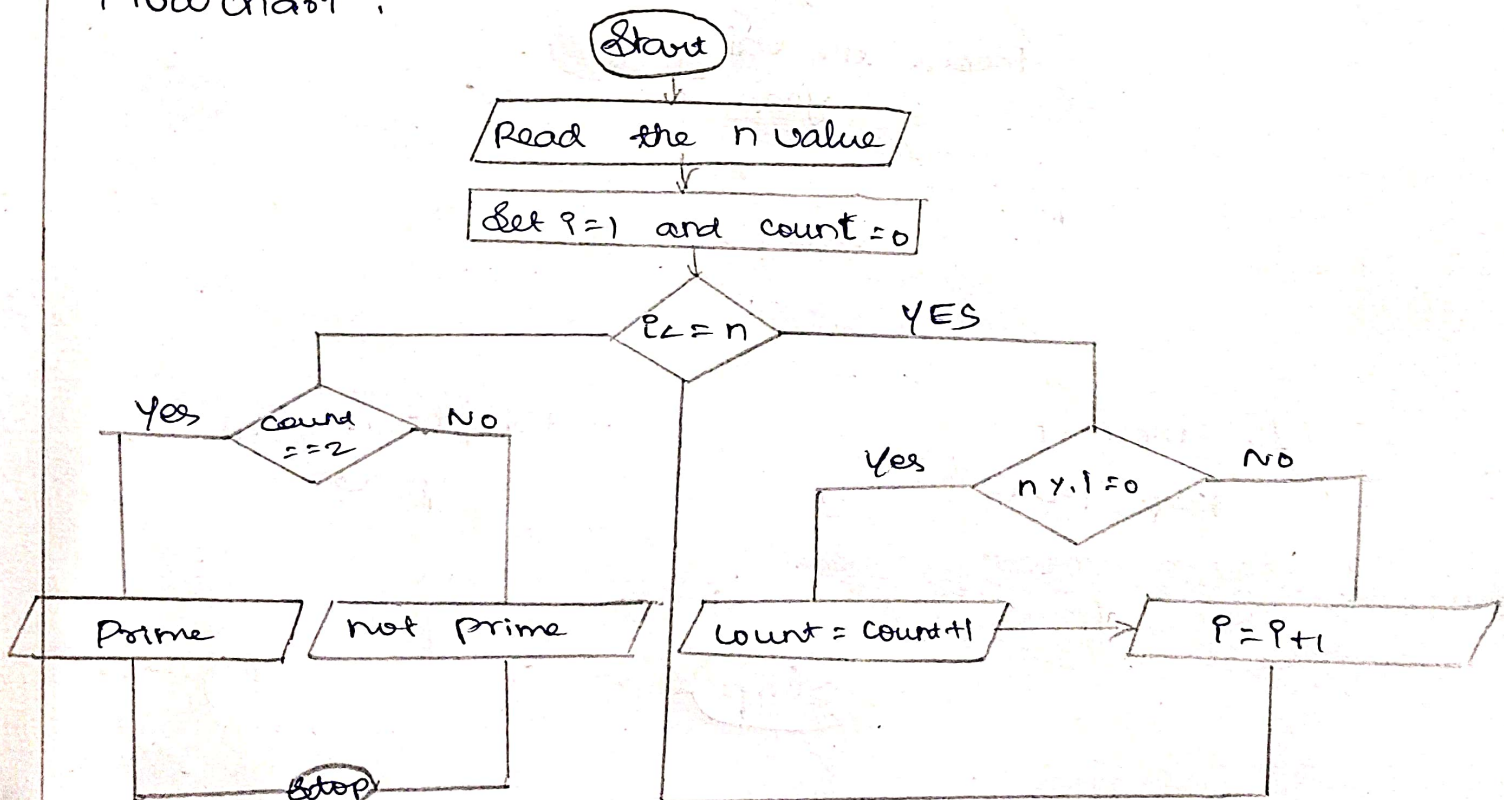 Flow chart :
Start
Read the n value
Set i=1 and count=0
i<=n
YES
Yes
count
==2
NO
Yes
n%i=0
NO
Prime
not prime
count = count+1
i=i+1
Stop